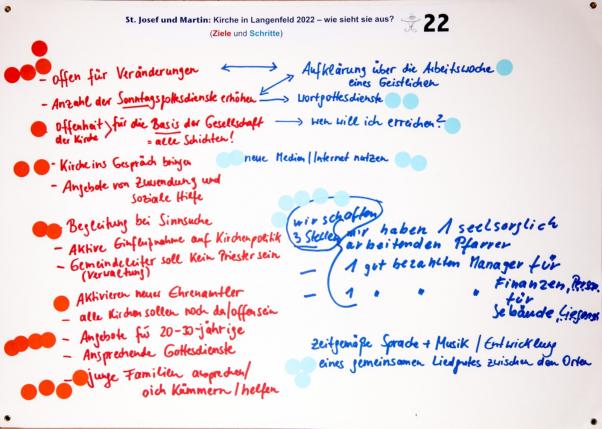 St. Josef und Martin: Kirche in Langenfeld 2022 – wie sieht sie aus?
22
(Ziele und Schritte)
- offen für Veränderungen
- Anzahl der Sonntagsgottesdienste erhöhen
- Offenheit der Kirche
für die Basis der Gesellschaft
= alle Schichten!
- Kirche ins Gespräch bringen
- Angebote von Zuwendung und
soziale Hilfe
- Begleitung bei Sinnsuche
- Aktive Einflußnahme auf Kirchenpolitik
- Gemeindeleiter soll kein Priester sein
(Verwaltung)
- Aktivieren neuer Ehrenamtler
- alle Kirchen sollen noch da/offen sein
- Angebote für 20-30-jährige
- Ansprechende Gottesdienste
- junge Familien ansprechen/
sich kümmern/helfen
Aufklärung über die Arbeitswoche
eines Geistlichen
Wortgottesdienste
wen will ich erreichen?
neue Medien/Internet nutzen
wir schaffen
3 Stellen
wir haben 1 seelsorglich
arbeitenden Pfarrer
- 1 gut bezahlten Manager für
Finanzen,
- 1 " " " für
Gebäude,
zeitgemäße Sprache + Musik / Entwicklung
eines gemeinsamen Liedgutes zwischen den Orten